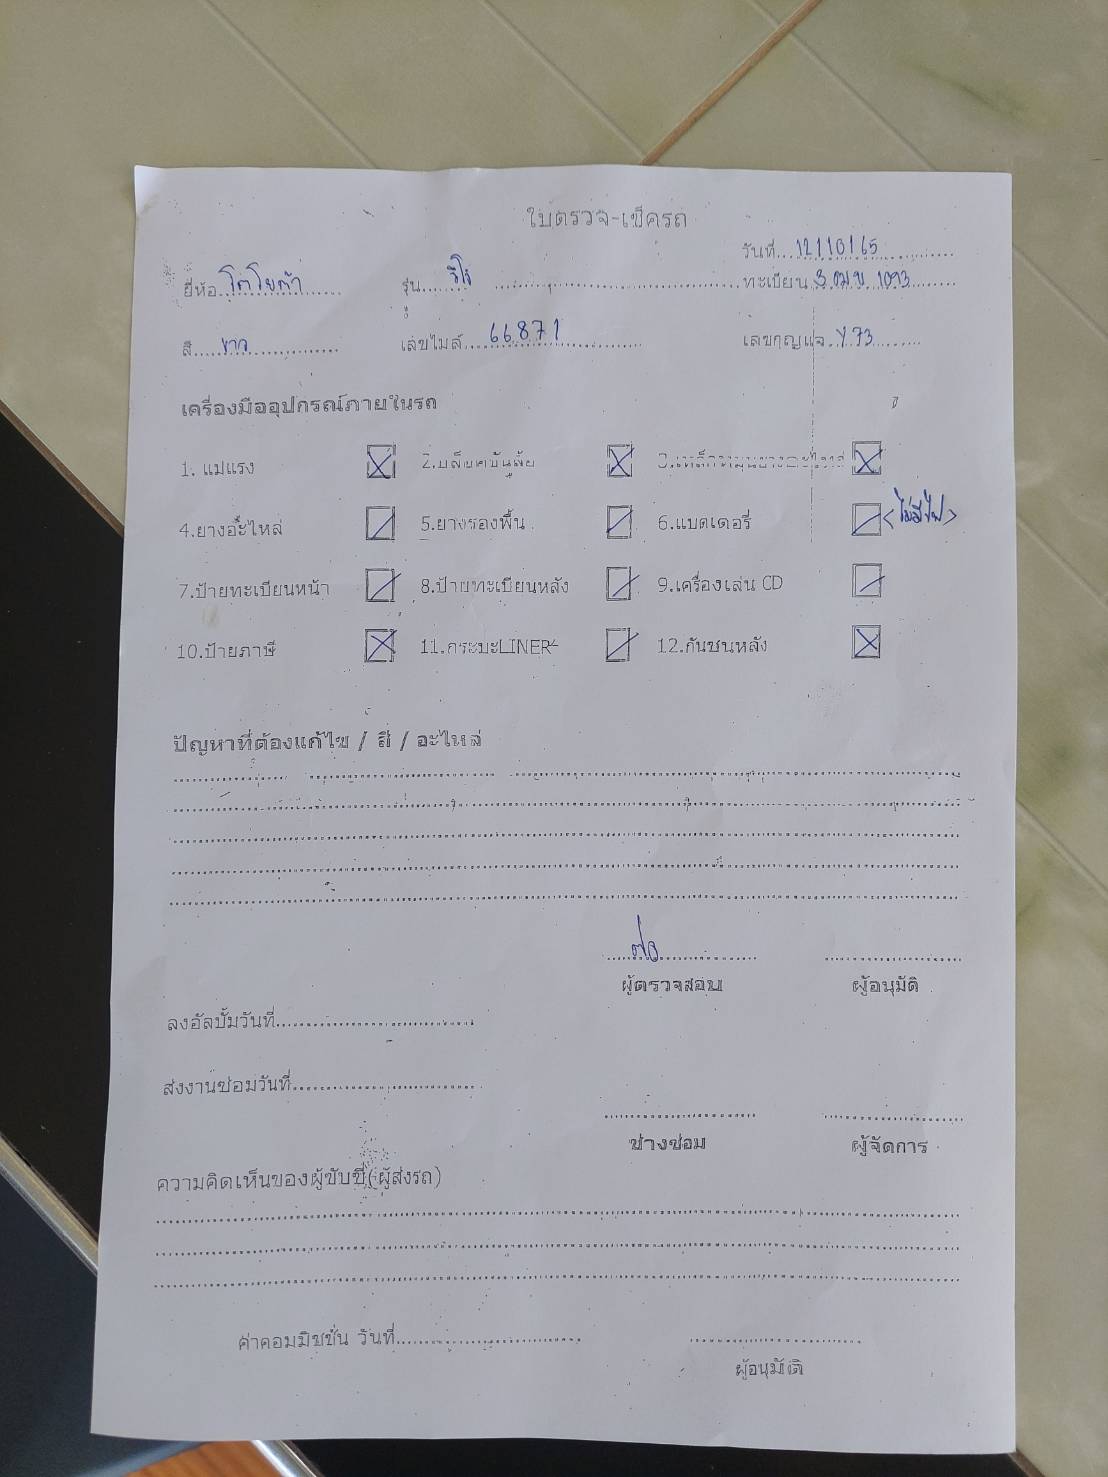 ใบตรวจ-เช็ครถ
วันที่ 12/10/65
ยี่ห้อ โตโยต้า รุ่น วีโก้ ทะเบียน 3 ฒข 1093
สี ขาว เลขไมล์ 66871 เลขกุญแจ Y73
เครื่องมืออุปกรณ์ภายในรถ
1. แม่แรง 2.บล็อคขันล้อ 3.
4.ยางอะไหล่ 5.ยางรองพื้น 6.แบตเตอรี่ <ไม่มีไฟ>
7.ป้ายทะเบียนหน้า 8.ป้ายทะเบียนหลัง 9.เครื่องเล่น CD
10.ป้ายภาษี 11.กระบะLINER 12.กันชนหลัง
ปัญหาที่ต้องแก้ไข / สี / อะไหล่
ผู้ตรวจสอบ ผู้อนุมัติ
ลงอัลบั้มวันที่
ส่งงานซ่อมวันที่
ช่างซ่อม ผู้จัดการ
ความคิดเห็นของผู้ขับขี่(ผู้ส่งรถ)
ค่าคอมมิชชั่น วันที่
ผู้อนุมัติ